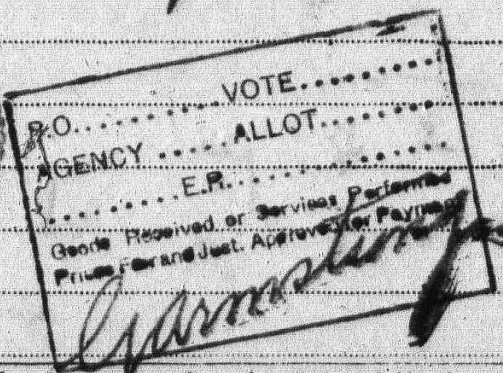 P.O..........VOTE.............
AGENCY ......ALLOT...........
..........E.R................
Goods Received or Services Performed
Prices Fair and Just. Approved for Payment